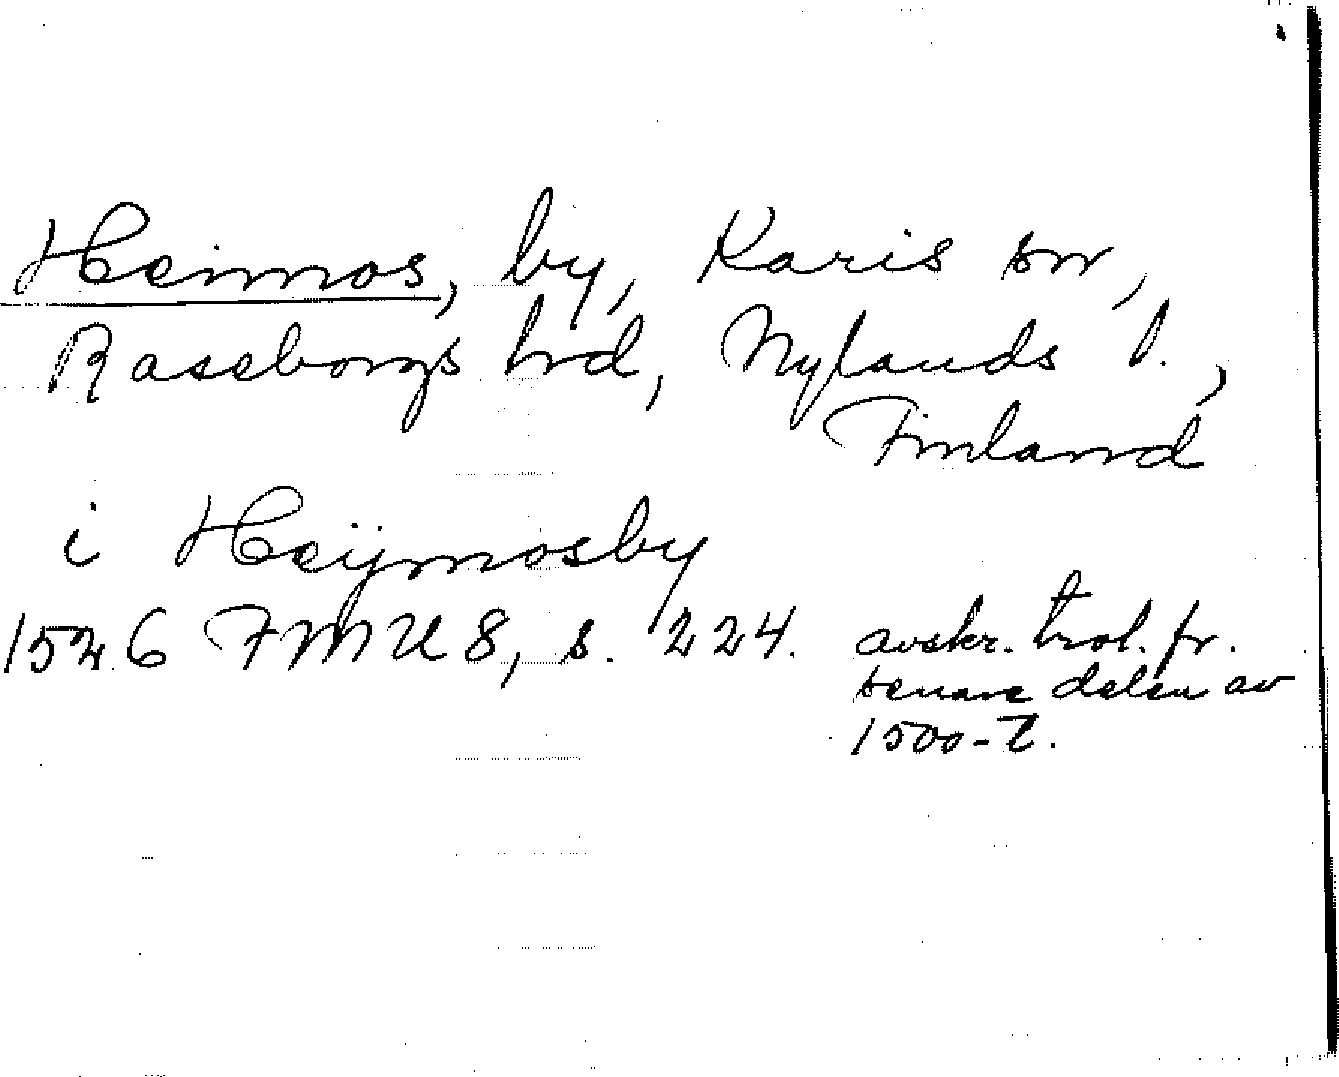 Heimos, by, Karis sn,
Raseborgs hrd, Nylands l.,
Finland
i Heÿmosby
1526 FMU 8, s. 224. avskr. trol. fr.
senare delen av
1500-t.